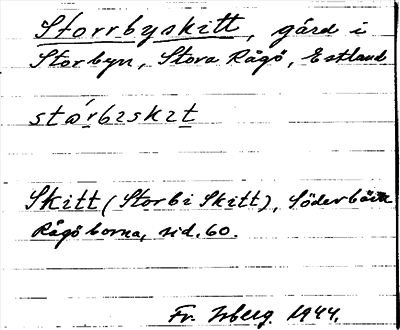 Storrbyskitt, gård i
Storbyn, Stora Rågö, Estland
stárbɪskɪt
Skitt (Storbi Skitt), Söderbäck
Rågöborna, sid. 60.
Fr. Isberg. 1944.